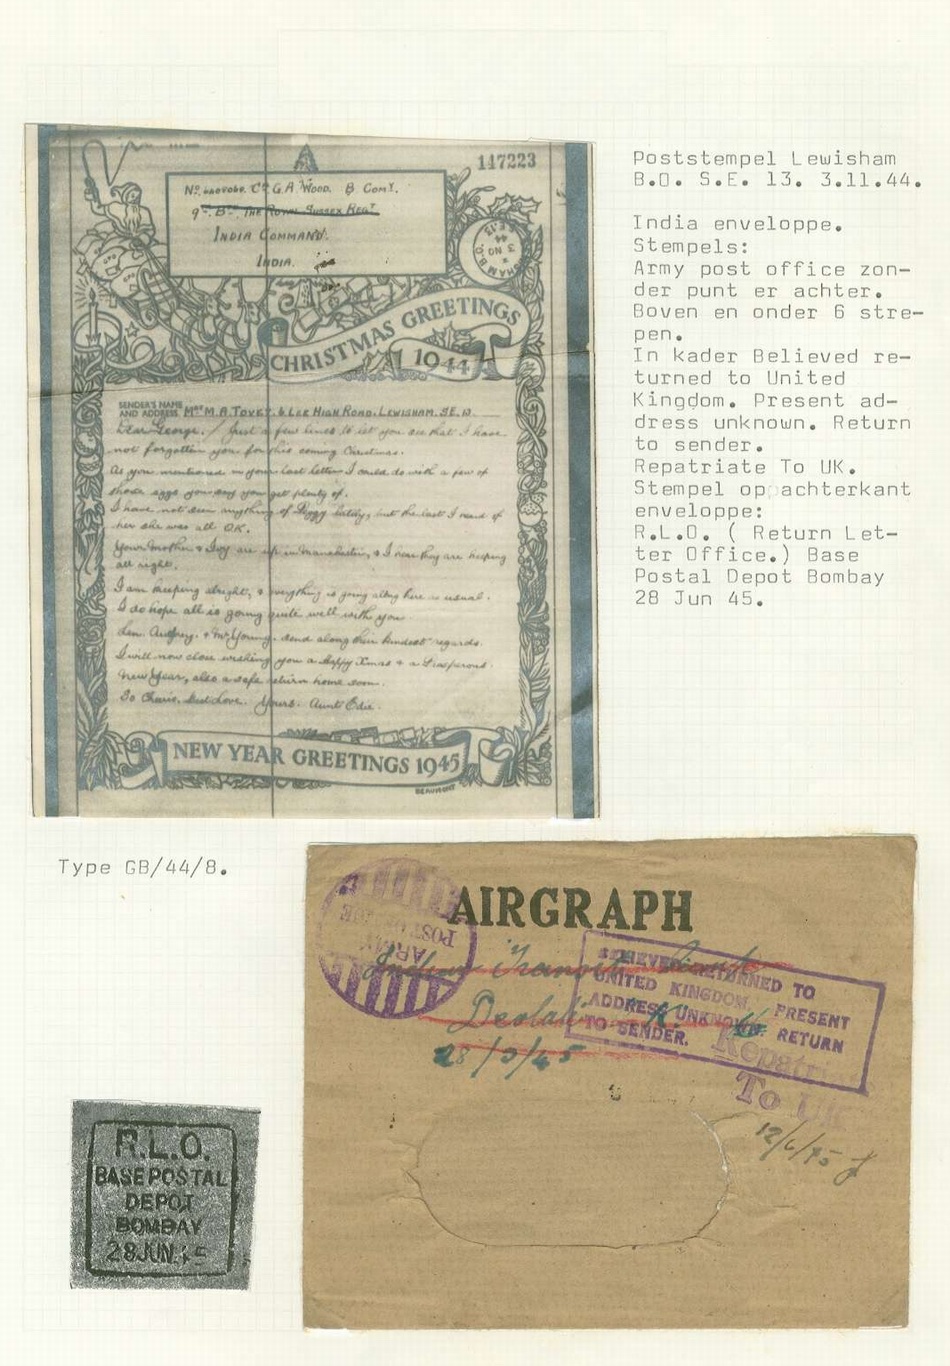 117223
No 6405060. Cpl G A Wood. B Comy.
9th Bn The Royal Sussex Regt
India Command.
India.
CHRISTMAS GREETINGS
1944
SENDER'S NAME
AND ADDRESS Mrs M.A. Tovey. 6 Lee High Road. Lewisham. SE.13
Dear George. / Just a few lines to let you see that I have
not forgotten you for this coming Christmas.
As you mentioned in your last letter I could do with a few of
those eggs you say you get plenty of.
I have not seen anything of Peggy lately, but the last I heard of
her she was all OK.
Your Mother & Ivy are up in Manchester, & I hear they are keeping
all right.
I am keeping alright, & everything is going along here as usual.
I do hope all is going quite well with you.
Len. Audrey. & Mr Young. send along their kindest regards.
I will now close wishing you a Happy Xmas & a Prosperous
New Year, also a safe return home soon.
So Cheerio. Best Love. Yours. Aunt Edie.
NEW YEAR GREETINGS 1945
BEAUMONT
Poststempel Lewisham
B.O. S.E. 13. 3.11.44.
India enveloppe.
Stempels:
Army post office zon-
der punt er achter.
Boven en onder 6 stre-
pen.
In kader Believed re-
turned to United
Kingdom. Present ad-
dress unknown. Return
to sender.
Repatriate To UK.
Stempel op achterkant
enveloppe:
R.L.O. ( Return Let-
ter Office.) Base
Postal Depot Bombay
28 Jun 45.
Type GB/44/8.
AIRGRAPH
ARMY
POST OFFICE
BELIEVED RETURNED TO
UNITED KINGDOM. PRESENT
ADDRESS UNKNOWN. RETURN
TO SENDER.
Deolali
28/3/45
To UK
12/6/45
R.L.O.
BASE POSTAL
DEPOT
BOMBAY
28 JUN 45